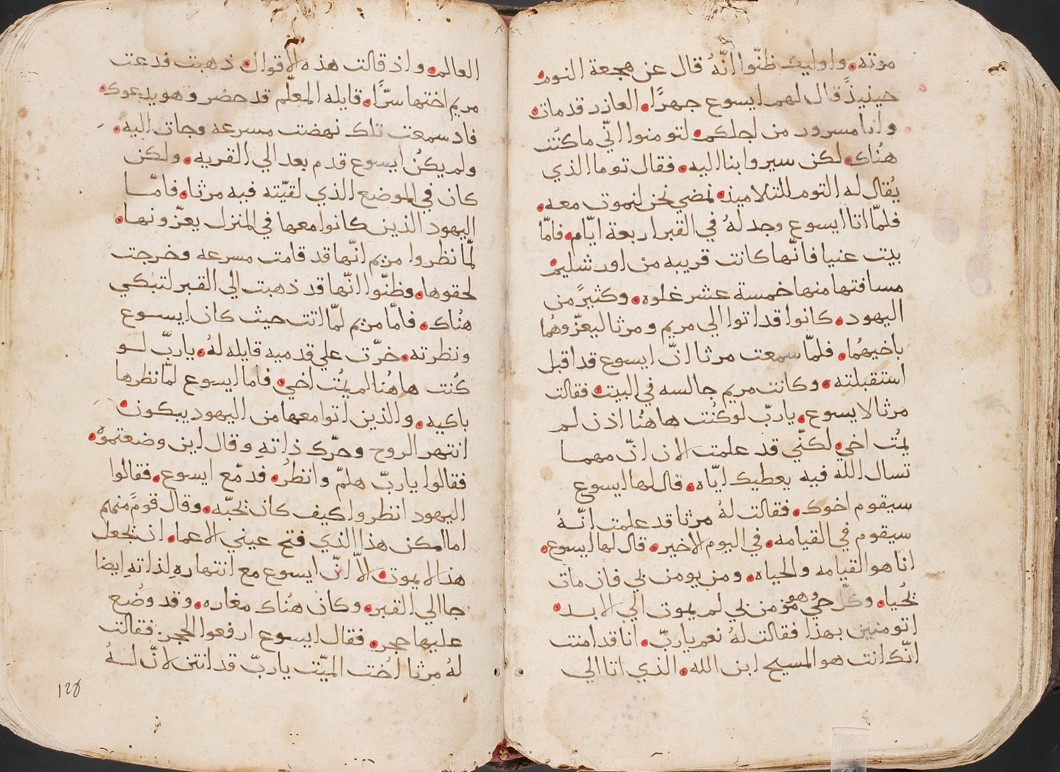 موته. واوليك ظنّوا انّهُ قال عن هجعة النوم.
حينيذً قال لهم ايسوع جهرًا. العازر قد مات.
وانا مسرور من اجلكم. لتومنوا انّي ما كنت
هناك. لكن سيروا بنا اليه. فقال توما الذي
يُقال له التوم للتلاميذ. نمضي نحن لنموت معه.
فلمّا اتا ايسوع وجد لهُ في القبر اربعة ايّام. فامّا
بيت عنيا فانّها كانت قريبه من اورشليم.
مسافتها منها خمسة عشر غلوه. وكثيرً من
اليهود. كانوا قد اتوا الي مريم ومرثا ليعزّوهما
باخيهُما. فلمّا سمعت مرثا انّ ايسوع قد اقبل
استقبلته. وكانت مريم جالسه في البيت. فقالت
مرثا لايسوع. ياربّ لو كُنت هاهُنا اذن لم
يمُت اخي. لكنّي قد علمت الان انّ مهما
تسال الله فيه يعطيك ايّاه. قال لها ايسوع
سيقوم اخوك. فقالت لهُ مرثا قد علمت انّهُ
سيقوم في القيامه. في اليوم الاخير. قال لها ايسوع.
انا هو القيامه والحياه. ومن يومن بي فان مات
يُحيا. وكلّ حي وهو مومن بي لم يموت الي الابد.
اتومنين بهذا فقالت لهُ نعم ياربّ. انا قد امنت
انّك انت هو المسيح ابن الله. الذي اتا الي
العالم. واذ قالت هذه الاقوال. ذهبت فدعت
مريم اختها سرًّا. قايله المعلّم قد حضر وهو يدعوك.
فاذ سمعت تلك نهضت مسرعه وجات اليه.
ولم يكنُ ايسوع قدم بعد الي القريه. ولكن
كان في الموضع الذي لقيَته فيه مرثا. فامّا
اليهود الذين كانوا معها في المنزل يعزّونها.
لمّا نظروا مريم انّها قد قامت مسرعه وخرجت
لحقوها. وظنّوا انّها قد ذهبت الي القبر لتبكي
هُناك. فامّا مريم لمّا اتت حيث كان ايسوع
ونظرته. خرّت علي قدميه قايله لهُ. ياربّ لو
كُنت هاهُنا لم يمُت اخي. فاما ايسوع لمّا نظرها
باكيه. والذين اتوا معها من اليهود يبكون.
انتهر الروح وحرّك ذاته وقال اين وضعتموهُ.
فقالوا ياربّ هلمّ وانظرُ. فدمّع ايسوع. فقالوا
اليهود انظروا كيف كان يُحبّه. وقال قومً منهم
اما امكن هذا الذي فتح عيني الاعما. ان يجعل
هذا لا يموت. الّا انّ ايسوع مع انتهاره لذاته ايضا
جا الي القبر. وكان هُناك مغاره. وقد وضع
عليها حجر. فقال ايسوع ارفعوا الحجر. فقالت
لهُ مرثا اُخت الميّت ياربّ قد انتن لانّ لهُ